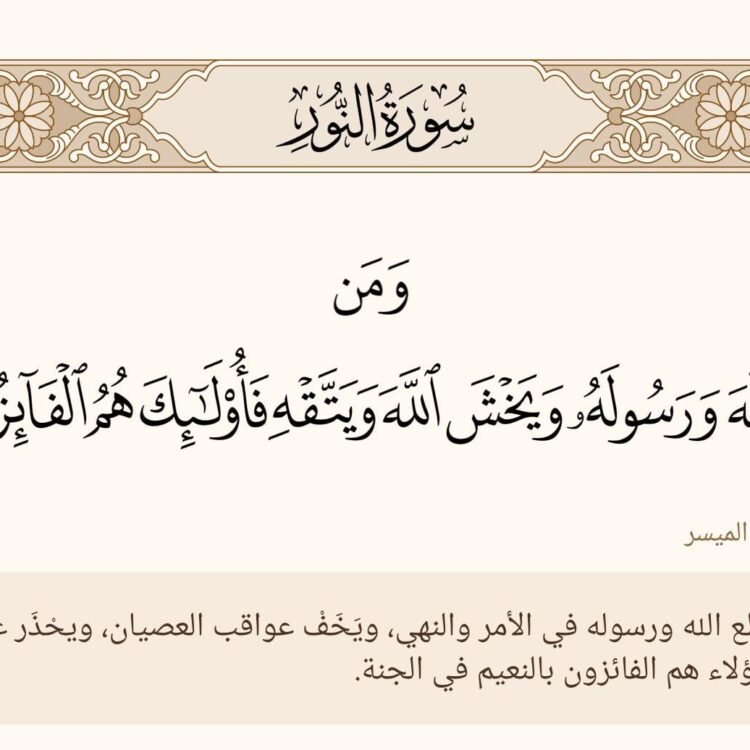 سُورَةُ النُّورِ
وَمَن
وَرَسُولَهُۥ وَيَخۡشَ ٱللَّهَ وَيَتَّقۡهِ فَأُوْلَٰٓئِكَ هُمُ
الميسر
الله ورسوله في الأمر والنهي، ويَخَفْ عواقب العصيان، ويحْذَر
هم الفائزون بالنعيم في الجنة.